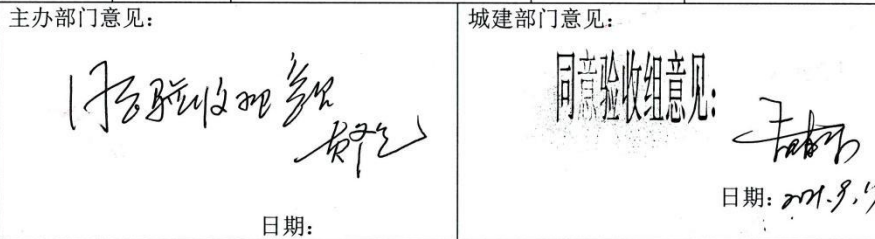 主办部门意见：
同意验收组意见
日期：
城建部门意见：
同意验收组意见：
日期：2021.9.